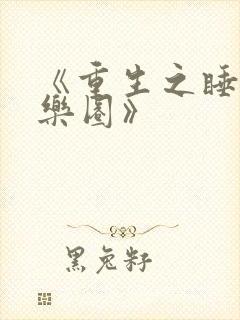 《重生之睡
樂園》
黑兔籽